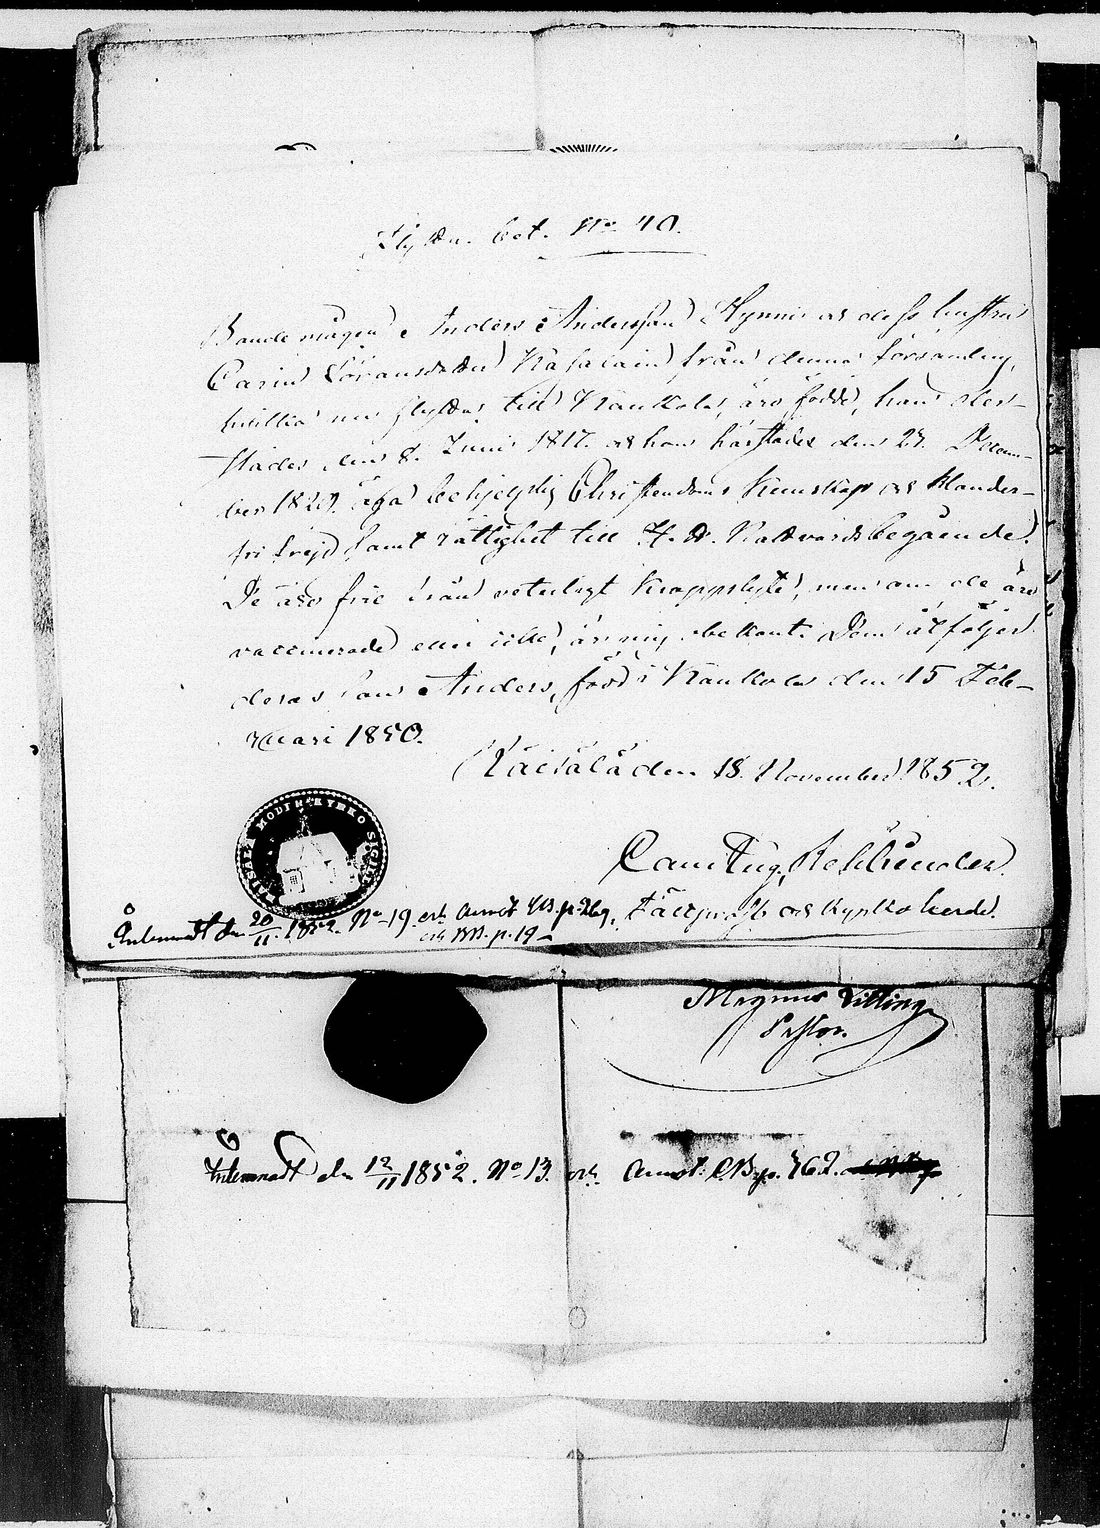 Flyttn. bet. No 40.
Bondemågen Anders Andersson Hynni och dess hustru
Carin Göransdotter Kasalain från denna församling,
hvilka nu flyttas till Kaukola, äro födde, han der-
städes den 8. Junii 1817. och hon härstädes den 29. Decem-
ber 1829. äga behjelplig Christendoms kunskap och klander-
fri frejd samt rättighet till H. H. Nattvards begående.
De äro frie från veterligt kroppslyte, men om de äro
vaccinerade eller icke, är mig obekant. Dem åtföljer
deras son Anders, född i Kaukola den 15 Feb-
ruari 1850.
Räisälä den 18. November 1852.
RAISALA MODER KYRKO SIGILL
Carl Aug.
och Kyrkoherde.
Inlemnadt den 20/11 1852. No 19. och annot. KB. p. 269.
och BB. p. 19
Magnus Villing
Pastor.
Inlemnadt den 12/11 1852. No 13. och annot. C.B. p. 762.